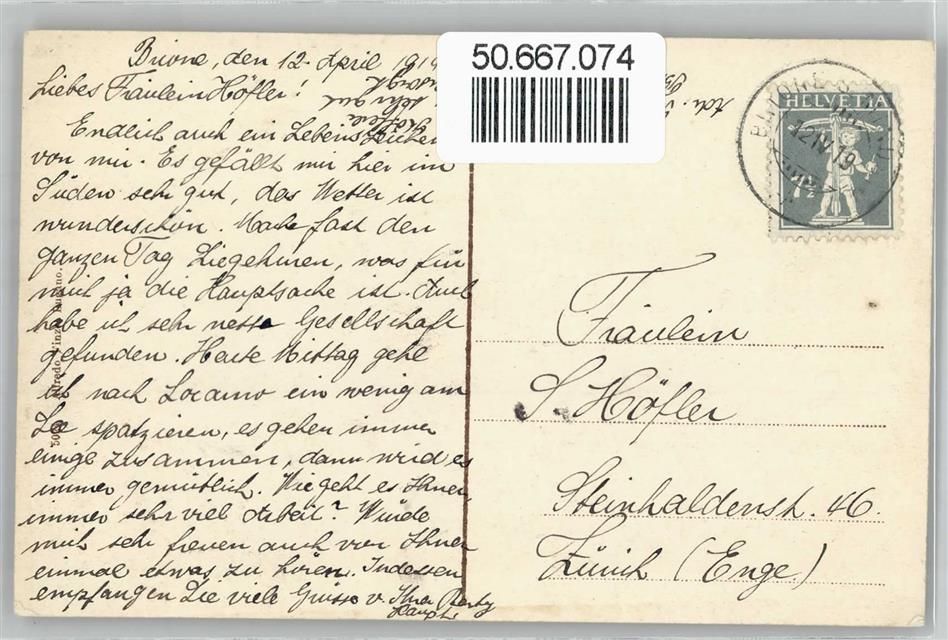 Brione, den 12. April 1919
Liebes Fräulein Höfler!
Endlich auch ein Lebenszeichen
von mir. Es gefällt mir hier im
Süden sehr gut, das Wetter ist
wunderschön. Mache fast den
ganzen Tag Liegekuren, was für
mich ja die Hauptsache ist. Auch
habe ich sehr nette Gesellschaft
gefunden. Heute Mittag gehe
ich nach Locarno ein wenig am
See spatzieren, es gehen immer
einige zusammen, dann wird es
immer gemütlich. Wie geht es Ihnen,
immer sehr viel Arbeit? Würde
mich sehr freuen auch von Ihnen
einmal etwas zu hören. Indessen
empfangen Sie viele Grüsse v. Ihrer
50.667.074
HELVETIA
12 IV 19
7½
Fräulein
S. Höfler
Steinhaldenstr. 46.
Zürich (Enge)
Alfredo Finzi, Lugano.